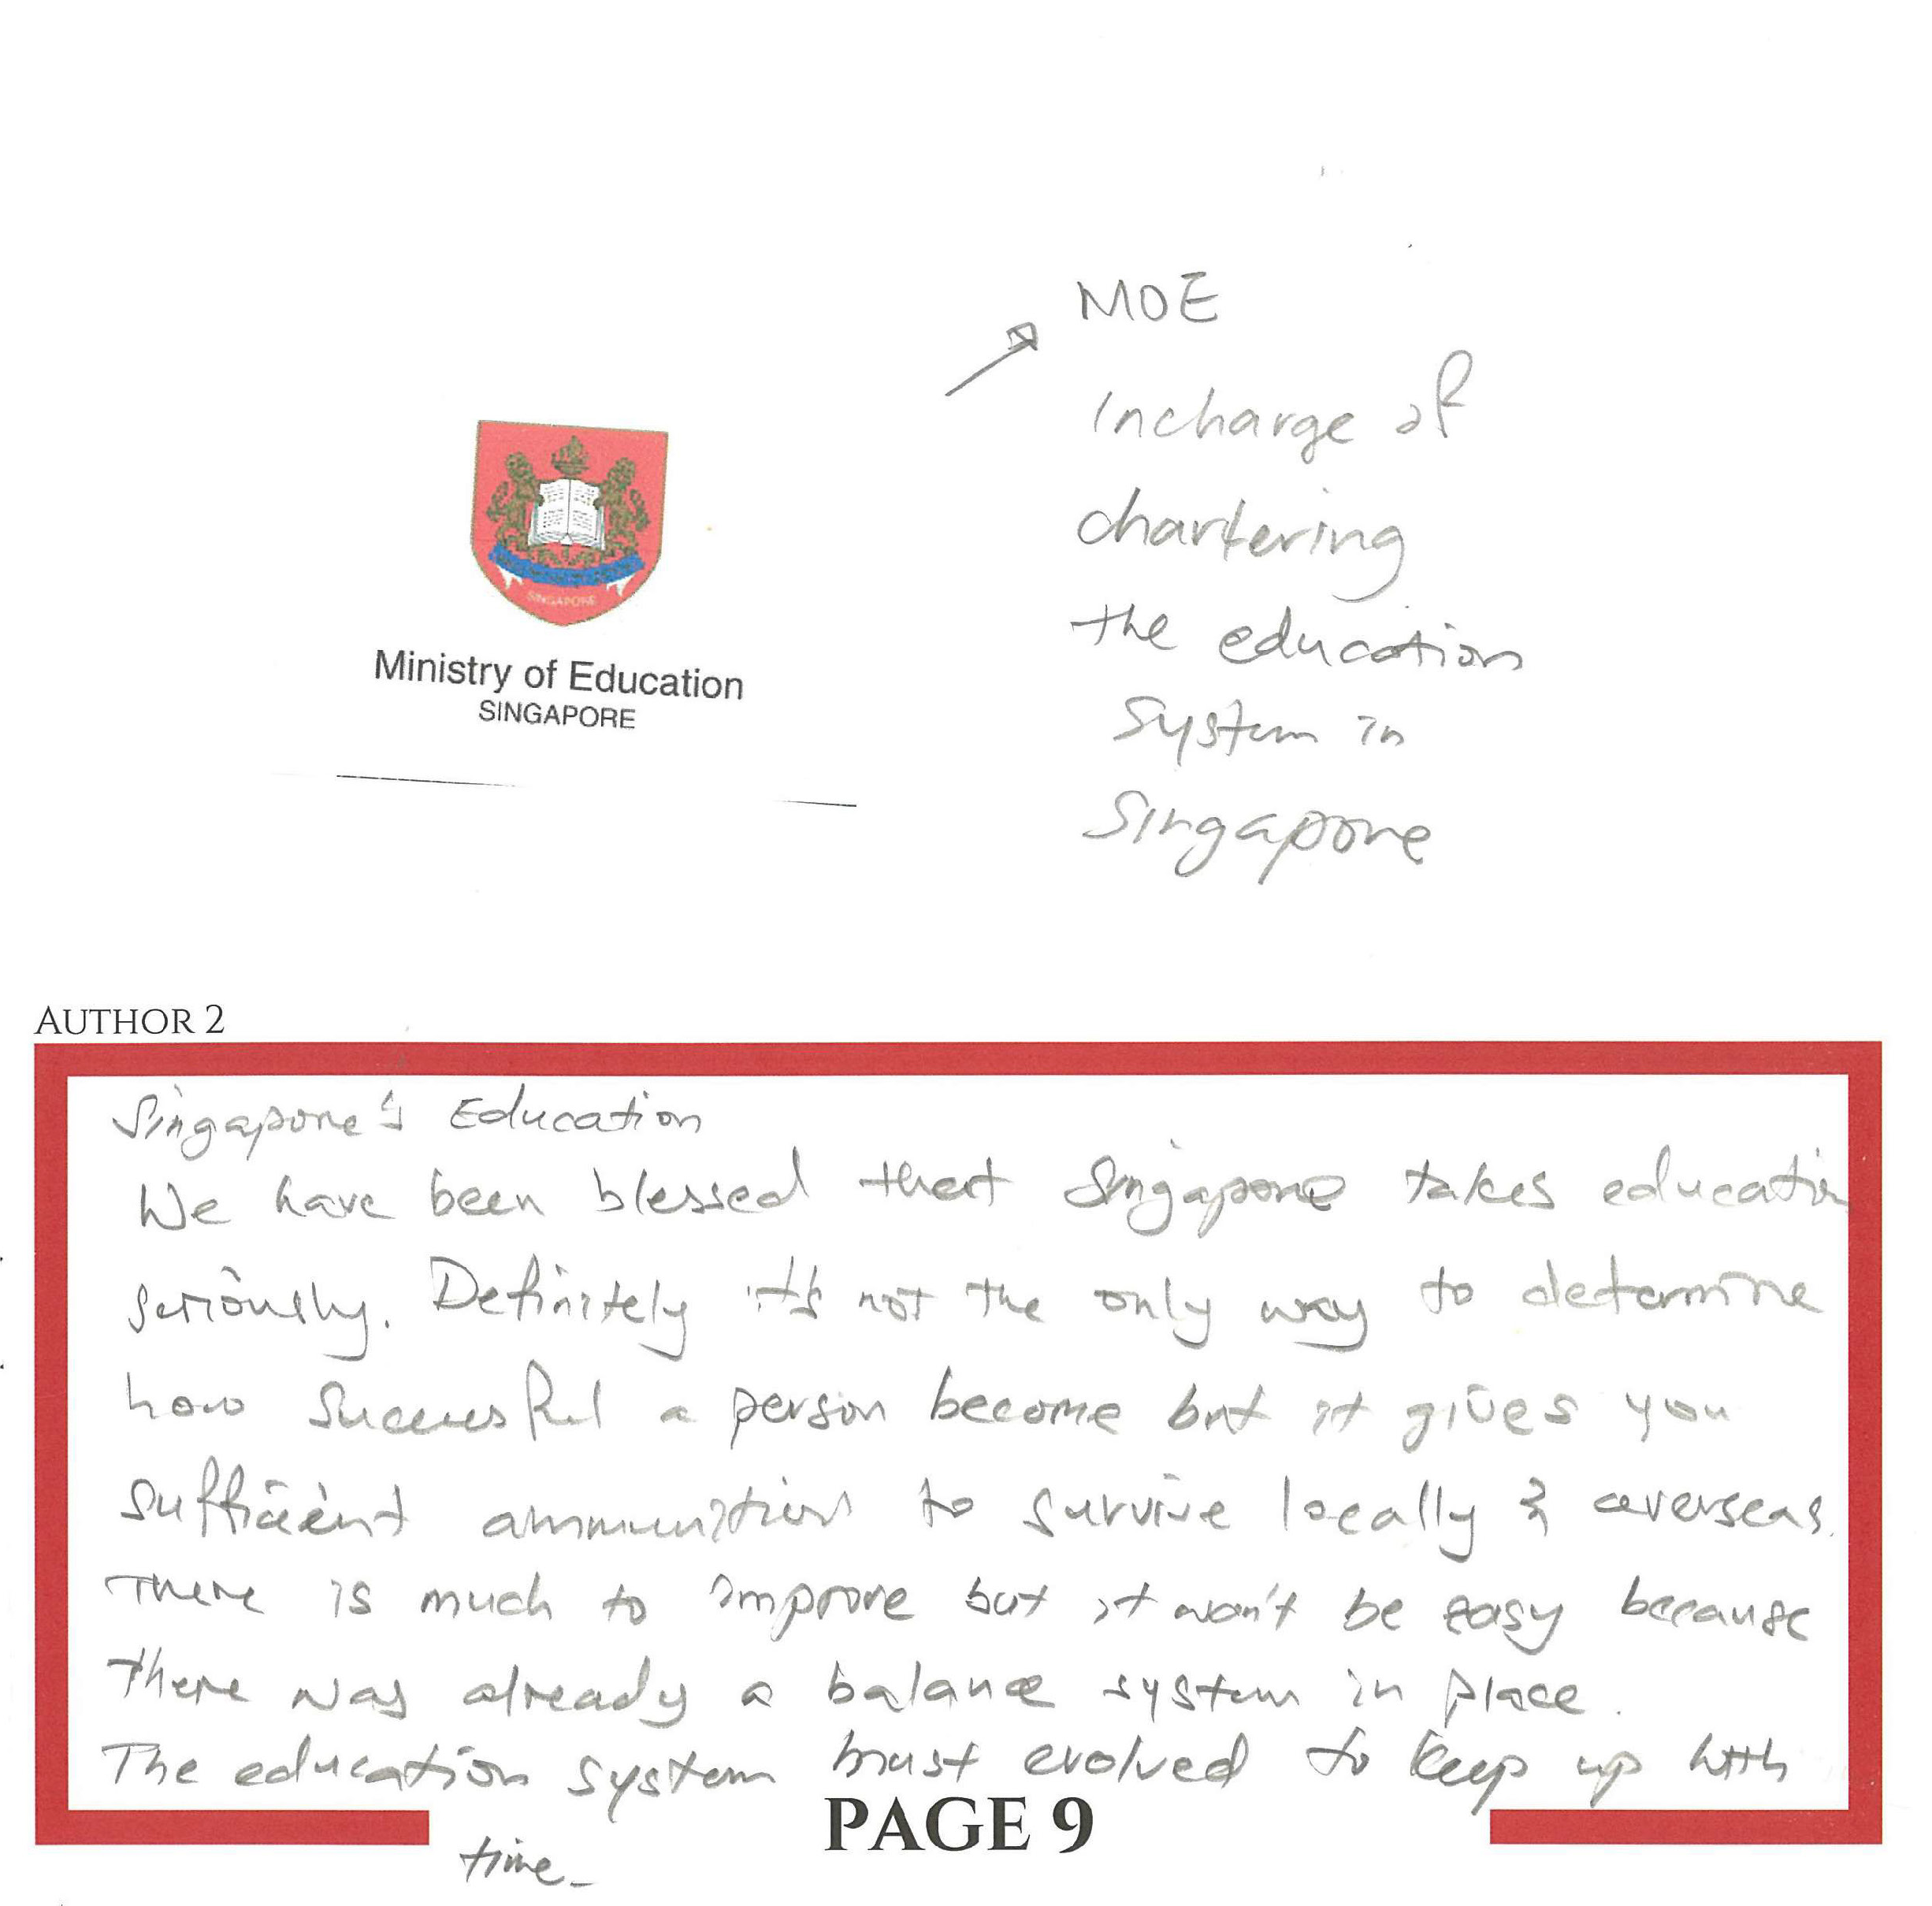 MOE
Incharge of
chartering
the education
System in
Singapore
SINGAPORE
Ministry of Education
SINGAPORE
AUTHOR 2
Singapore's Education
We have been blessed that Singapore takes education
seriously. Definitely it's not the only way to determine
how successful a person become but it gives you
sufficient ammunition to survive locally & overseas.
There is much to improve but it won't be easy because
there was already a balance system in place.
The education system must evolved to keep up with
time.
PAGE 9